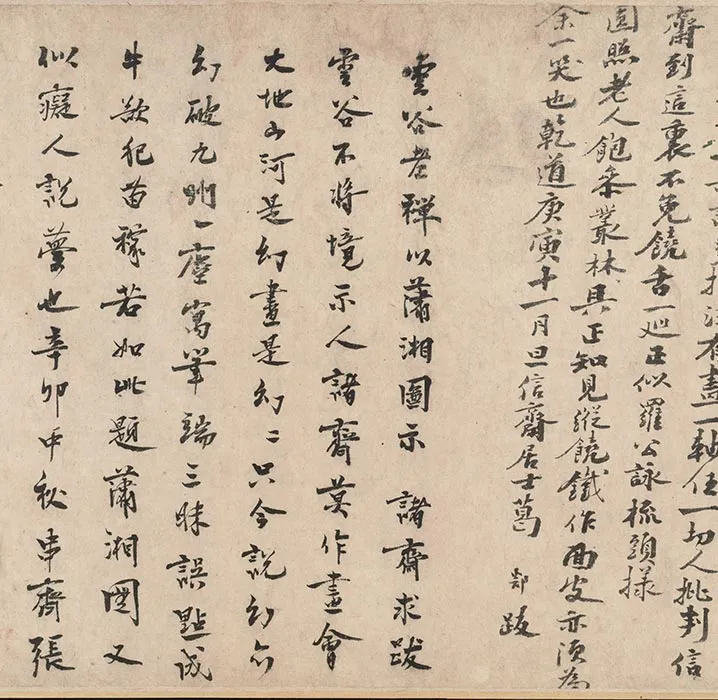 畫一軸任一切人批判信
齋到這裏不免饒舌一廵正似羅公詠梳頭樣
圓照老人飽叅叢林具正知見縱饒鐵作面皮亦須為
余一咲也乾道庚寅十一月旦信齋居士葛 郯 跋
雲谷老禪以蕭湘圖示 諸齋求跋
雲谷不將境示人諸齋莫作畫會
大地山河是幻畫是幻〻只今說幻亦
幻破九州一塵寫筆端三昧誤點成
牛欲犯苗稼若如此題蕭湘圖又
似癡人說夢也辛卯中秋齋張